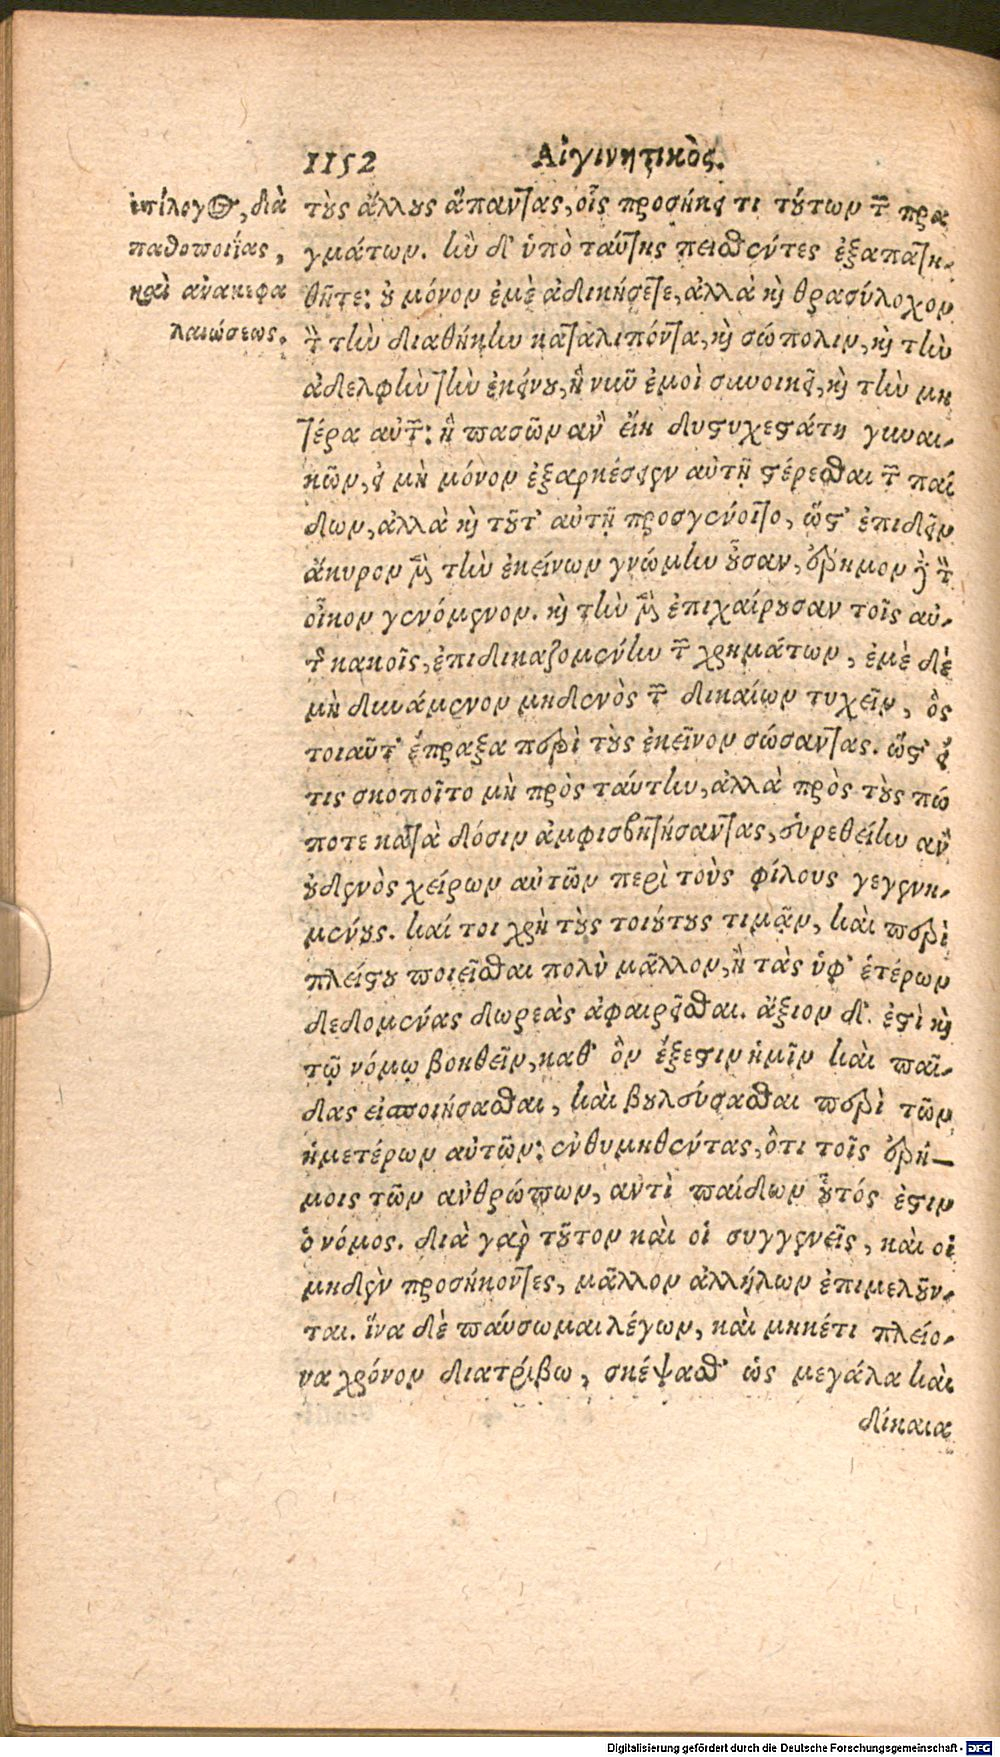 1152 Αἰγινητικὸς.
ἐπίλογος, διὰ
παθοποιΐας,
καὶ ἀνακεφα
λαιώσεως.
τοὺς ἄλλους ἅπαντας, οἷς προσήκει τι τούτων τῶν πρα
γμάτων. ἢν δ' ὑπὸ ταύτης πεισθέντες ἐξαπατη-
θῆτε: οὐ μόνον ἐμὲ ἀδικήσετε, ἀλλὰ καὶ θρασύλοχον
τὸν τὴν διαθήκην καταλιπόντα, καὶ σώπολιν, καὶ τὴν
ἀδελφὴν τὴν ἐκείνου, ἣ νῦν ἐμοὶ συνοικεῖ, καὶ τὴν μη
τέρα αὐτῶν: ἣ πασῶν ἂν εἴη δυστυχεστάτη γυναι-
κῶν, εἰ μὴ μόνον ἐξαρκέσειεν αὐτῇ στέρεσθαι τῶν παί
δων, ἀλλὰ καὶ τοῦτ' αὐτῇ προσγένοιτο, ὥστ' ἐπιδεῖν
ἄκυρον μὲν τὴν ἐκείνων γνώμην οὖσαν, ἔρημον δὲ τὸν
οἶκον γενόμενον. καὶ τὴν μὲν ἐπιχαίρουσαν τοῖς αὐ-
τῆς κακοῖς, ἐπιδικαζομένην τῶν χρημάτων, ἐμὲ δὲ
μὴ δυνάμενον μηδενὸς τῶν δικαίων τυχεῖν, ὃς
τοιαῦτ' ἔπραξα περὶ τοὺς ἐκεῖνον σώσαντας. ὥστ' εἴ
τις σκοποῖτο μὴ πρὸς ταύτην, ἀλλὰ πρὸς τοὺς πώ
ποτε κατὰ δόσιν ἀμφισβητήσαντας, εὑρεθείην ἂν
οὐδενὸς χείρων αὐτῶν περὶ τοὺς φίλους γεγενη-
μένους. καί τοι χρὴ τοὺς τοιούτους τιμᾷν, καὶ περὶ
πλείστου ποιεῖσθαι πολὺ μᾶλλον, ἢ τὰς ὑφ' ἑτέρων
δεδομένας δωρεὰς ἀφαιρεῖσθαι. ἄξιον δ' ἐστὶ καὶ
τῷ νόμῳ βοηθεῖν, καθ' ὃν ἔξεστιν ἡμῖν καὶ παῖ-
δας εἰσποιήσασθαι, καὶ βουλεύσασθαι περὶ τῶν
ἡμετέρων αὐτῶν: ἐνθυμηθέντας, ὅτι τοῖς ἐρή-
μοις τῶν ἀνθρώπων, ἀντὶ παίδων οὗτός ἐστιν
ὁ νόμος. διὰ γὰρ τοῦτον καὶ οἱ συγγενεῖς, καὶ οἱ
μηδὲν προσήκοντες, μᾶλλον ἀλλήλων ἐπιμελοῦν-
ται. ἵνα δὲ παύσωμαι λέγων, καὶ μηκέτι πλείο-
να χρόνον διατρίβω, σκέψασθ' ὡς μεγάλα καὶ
δίκαια
Digitalisierung gefördert durch die Deutsche Forschungsgemeinschaft - DFG